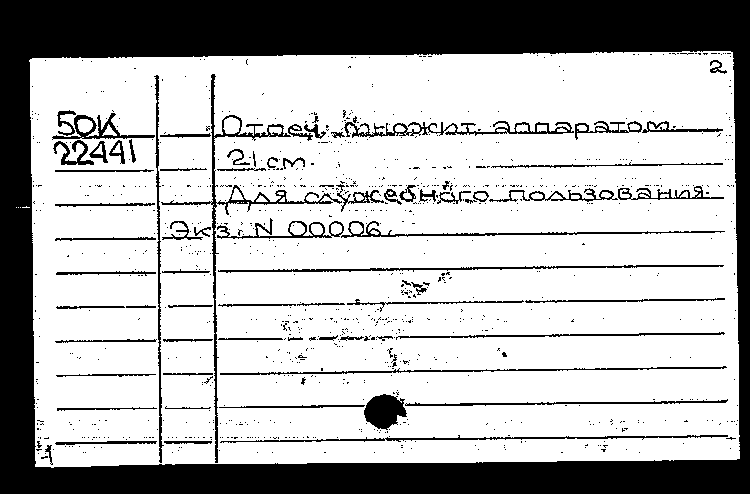 2
50К Отпеч. множит. аппаратом.
22441 21 см.
Для служебного пользования.
Экз. N 00006.